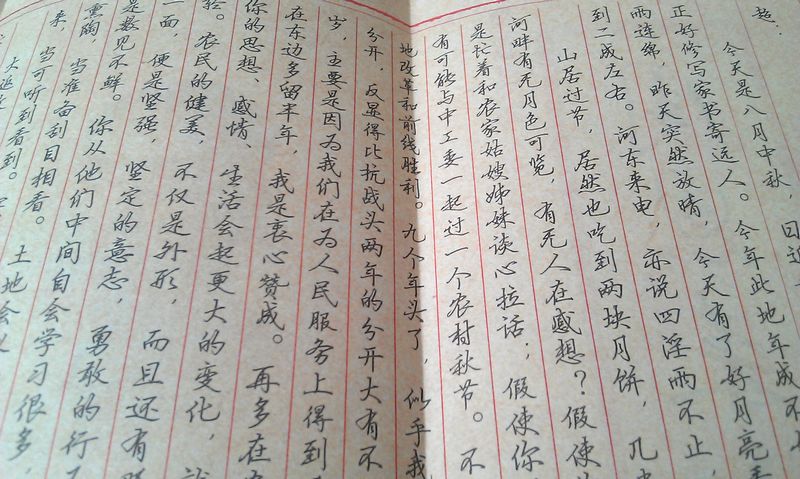 超：
今天是八月中秋，日近
正好修写家书寄远人。今年此地年成不
雨连绵，昨天突然放晴，今天有了好月亮
到二成左右。河东来电，亦说四淫雨不止，
山居过节，居然也吃到两块月饼，几
河畔有无月色可览，有无人在感想？假使
是忙着和农家姑嫂姊妹谈心拉话；假使你
有可能与中工委一起过一个农村秋节。不
地改革和前线胜利。九个年头了，似乎我
分开，反显得比抗战头两年的分开大有不
岁，主要是因为我们在为人民服务上得到
在东边多留半年，我是衷心赞成。再多在
你的思想、感情、生活会起更大的变化，
轻。农民的健美，不仅是外形，而且还有
一面，便是坚强坚定的意志，勇敢的行
是数见不鲜。你从他们中间自会学习很多，
熏陶，当准备刮目相看。
来，当可听到看到。土地会议